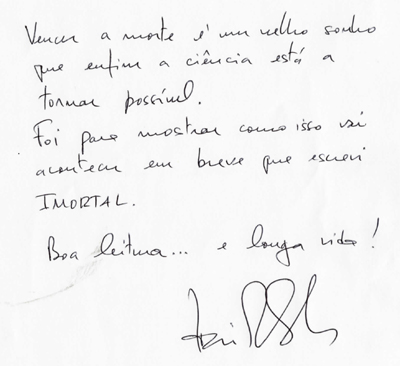 Vencer a morte é um velho sonho
que enfim a ciência está a
tornar possível.
Foi para mostrar como isso vai
acontecer em breve que escrevi
IMORTAL.
Boa leitura... e longa vida!